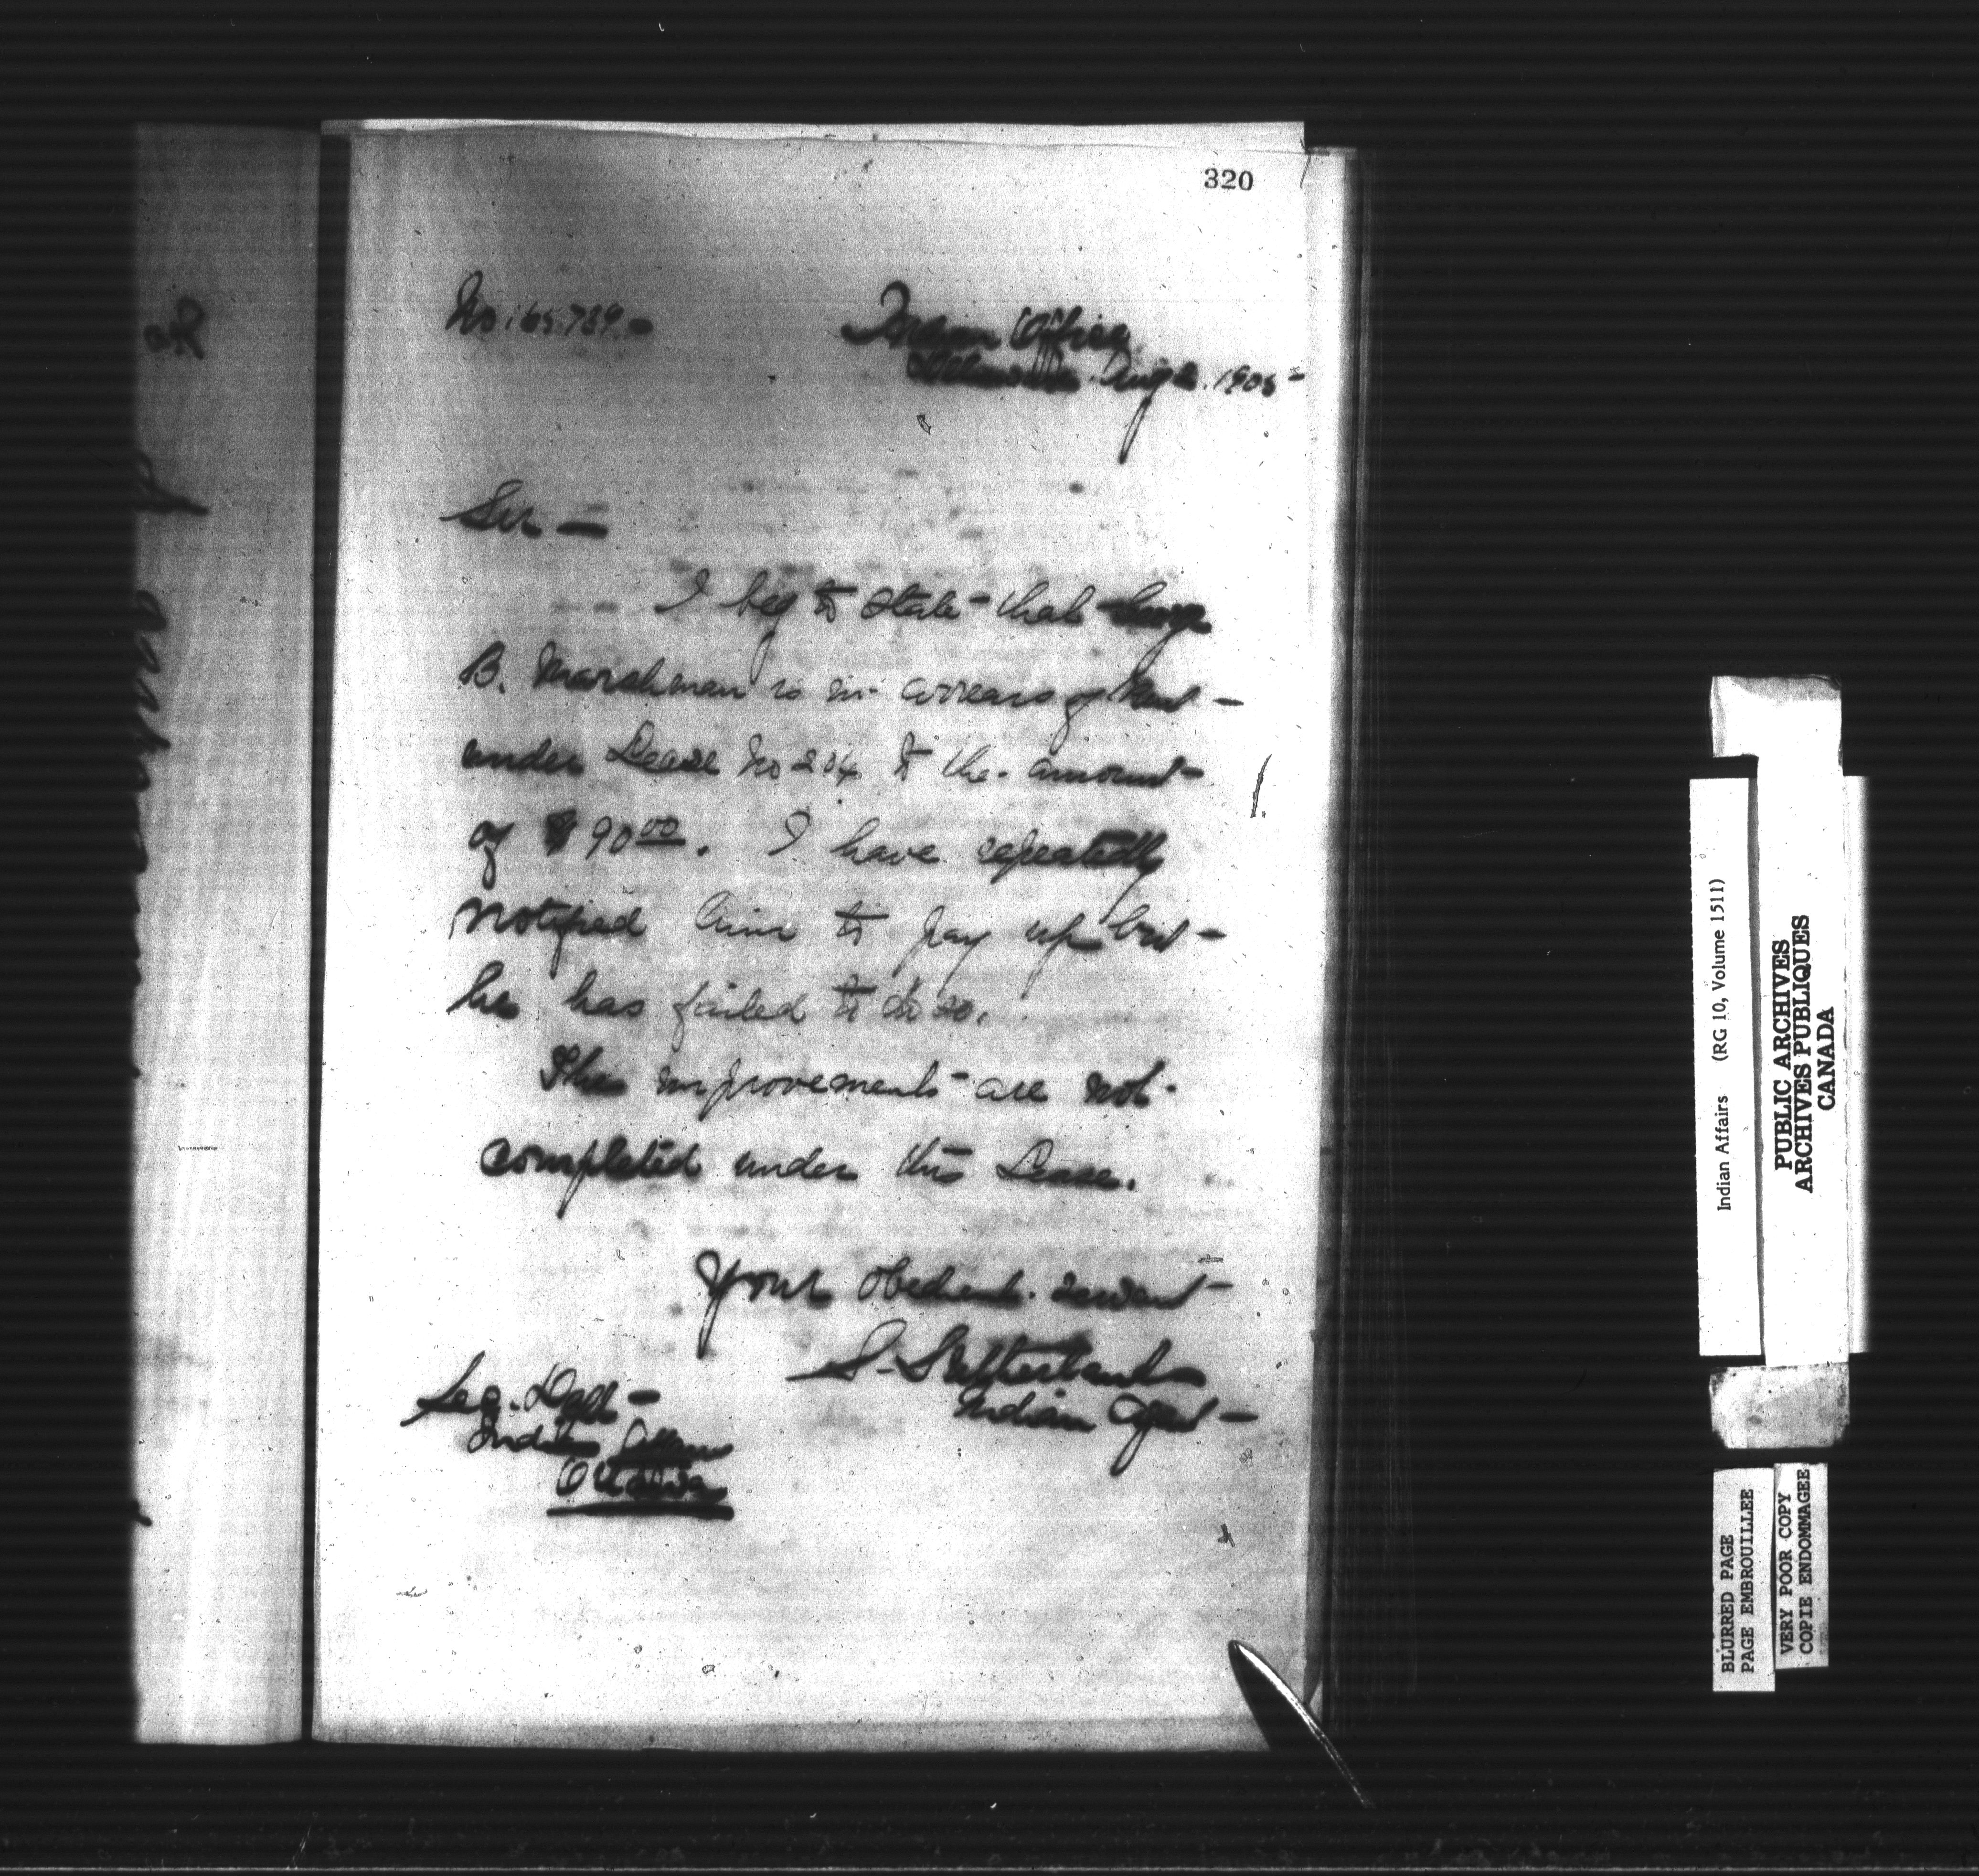 320
No. 165.739 -
Indian Office
Delaware Aug 2. 1905 -
Sir -
I beg to state that George
B. Marshman is in arrears of Rent
under Lease No 204 to the amount
of $90.00. I have repeatedly
notified him to pay up but
he has failed to do so.
The improvements are not
completed under this Lease.
Your obedient servant
S. Sutherland
Indian Agent
Sec. Dept
Indian Affairs
Ottawa
Indian Affairs (RG 10, Volume 1511)
PUBLIC ARCHIVES
ARCHIVES PUBLIQUES
CANADA
BLURRED PAGE
PAGE EMBROUILLEE
VERY POOR COPY
COPIE ENDOMMAGEE